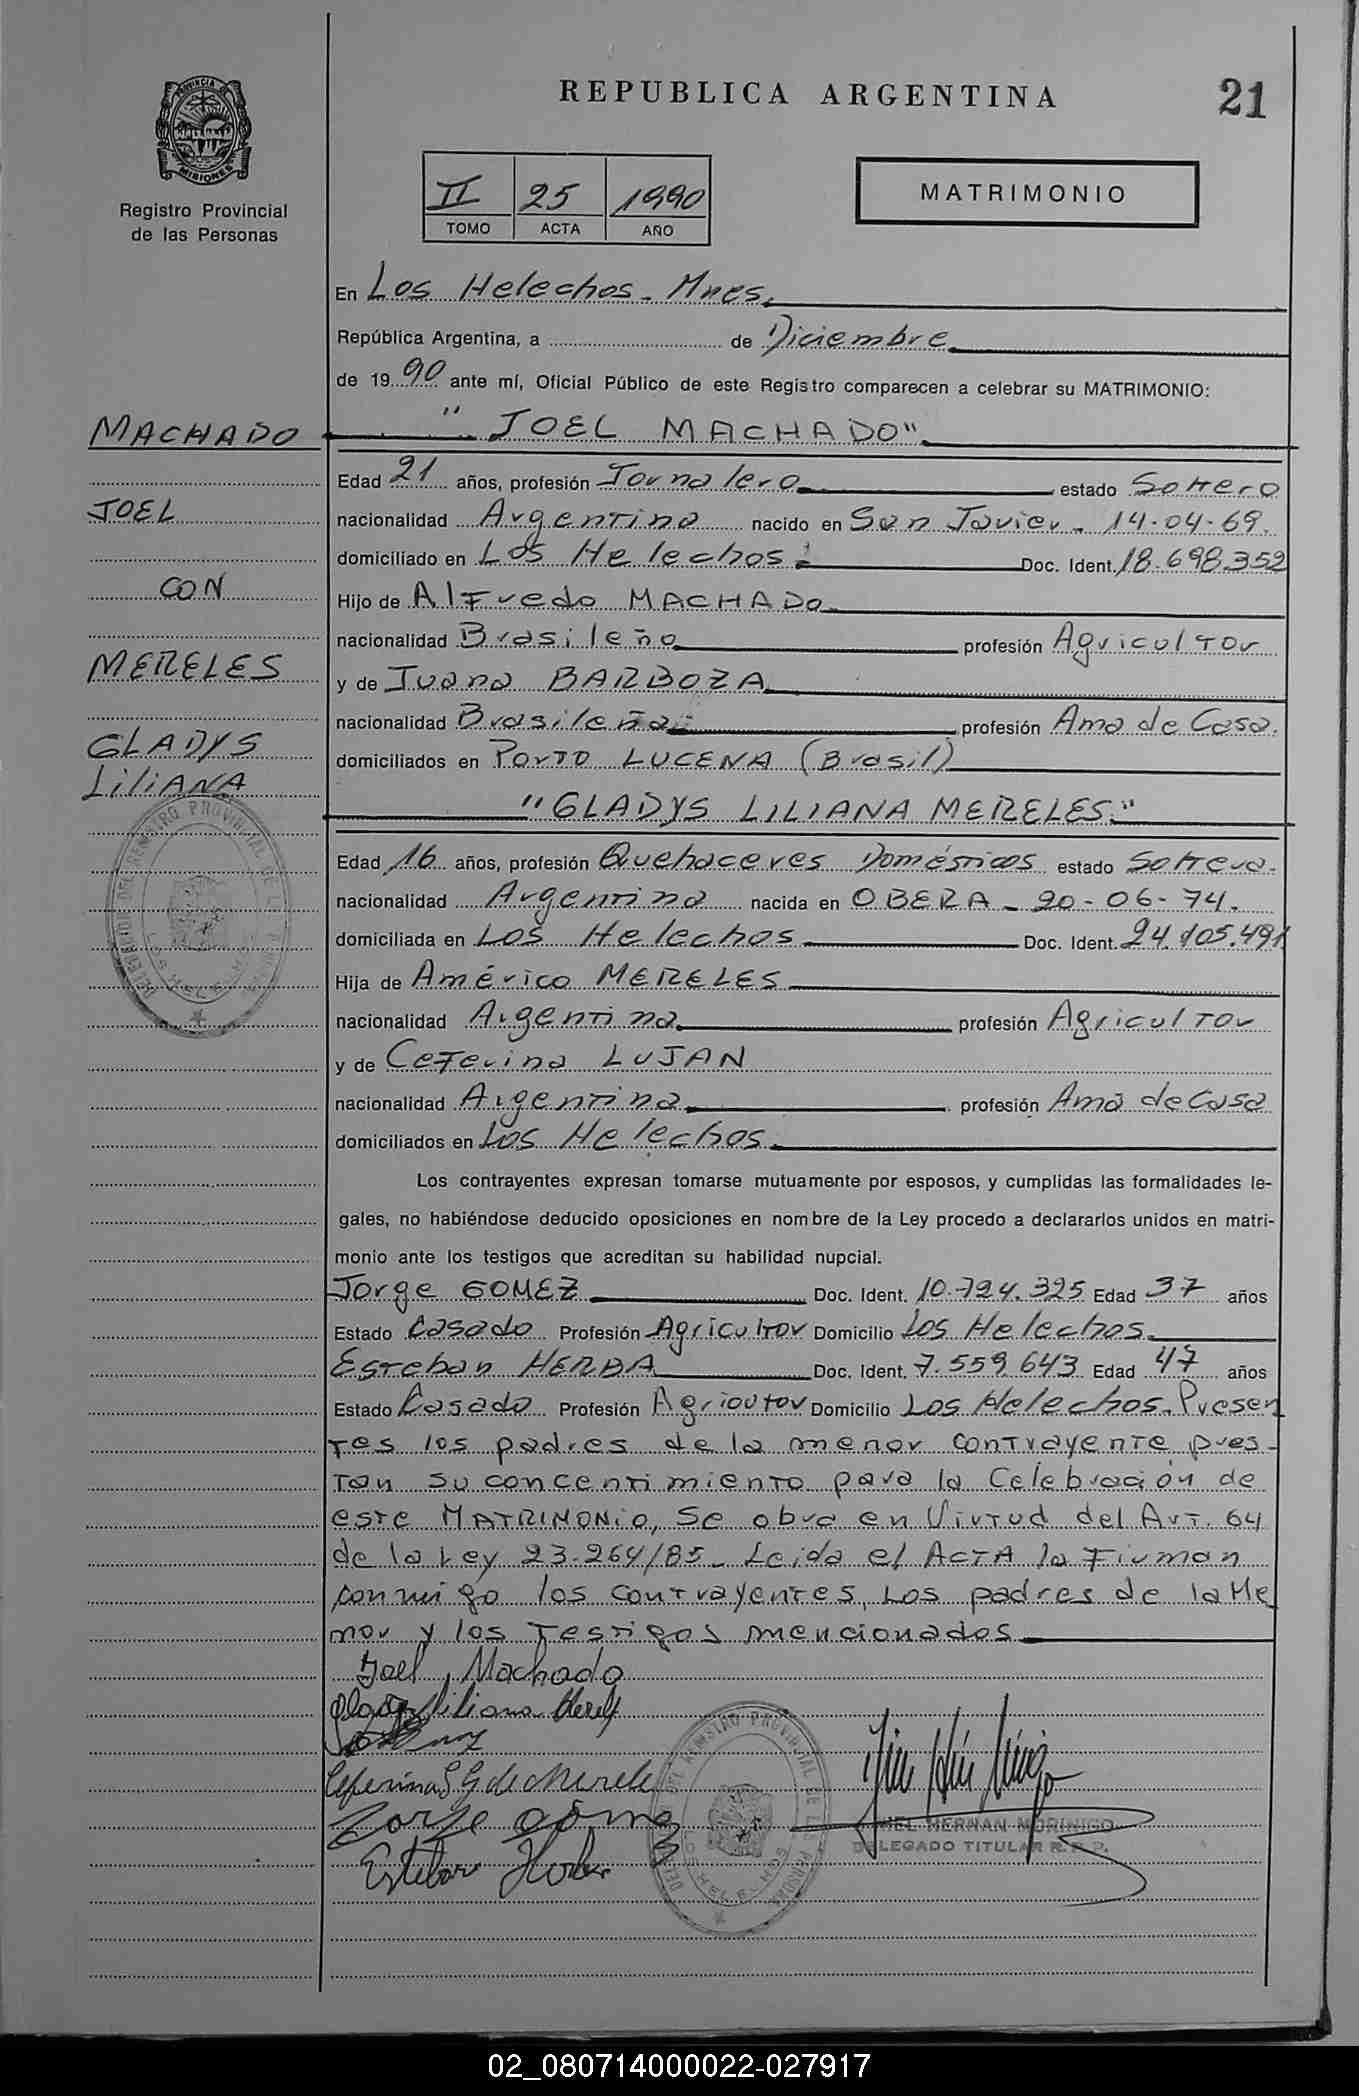 REPUBLICA ARGENTINA
21
PROVINCIA DE
MISIONES
Registro Provincial
de las Personas
II 25 1990
TOMO ACTA AÑO
MATRIMONIO
En Los Helechos - Mnes.
República Argentina, a de Diciembre
de 1990 ante mí, Oficial Público de este Registro comparecen a celebrar su MATRIMONIO:
MACHADO
JOEL
CON
MERELES
GLADYS
LiliANA
"JOEL MACHADO"
Edad 21 años, profesión Jornalero estado Soltero
nacionalidad Argentina nacido en San Javier - 14-04-69.
domiciliado en Los Helechos. Doc. Ident. 18.698.352
Hijo de Alfredo MACHADO
nacionalidad Brasileño profesión Agricultor
y de Juana BARBOZA
nacionalidad Brasileña profesión Ama de Casa.
domiciliados en Porto LUCENA (Brasil)
"GLADYS LILIANA MERELES."
Edad 16 años, profesión Quehaceres Domésticos estado Soltera.
nacionalidad Argentina nacida en OBERA - 20-06-74.
domiciliada en Los Helechos Doc. Ident. 24.105.491
Hija de Américo MERELES
nacionalidad Argentina profesión Agricultor
y de Ceferina LUJAN
nacionalidad Argentina profesión Ama de Casa
domiciliados en Los Helechos.
Los contrayentes expresan tomarse mutuamente por esposos, y cumplidas las formalidades le-
gales, no habiéndose deducido oposiciones en nombre de la Ley procedo a declararlos unidos en matri-
monio ante los testigos que acreditan su habilidad nupcial.
Jorge GOMEZ Doc. Ident. 10.724.325 Edad 37 años
Estado Casado Profesión Agricultor Domicilio Los Helechos.
Esteban HERBA Doc. Ident. 7.559.643 Edad 47 años
Estado Casado Profesión Agrioutor Domicilio Los Helechos. Presen
tes los padres de la menor contrayente pres-
tan su concentimiento para la Celebración de
este MATRIMONIO, se obra en Virtud del Art. 64
de la Ley 23.264/85 - Leida el ACTA la Firman
conmigo los contrayentes, Los padres de la Me
nor y los Testigos mencionados
Joel Machado
Liliana
Ceferina de Merele
Jorge
Esteban
HERNAN MORINIGO
DELEGADO TITULAR R.P.P.
02_080714000022-027917